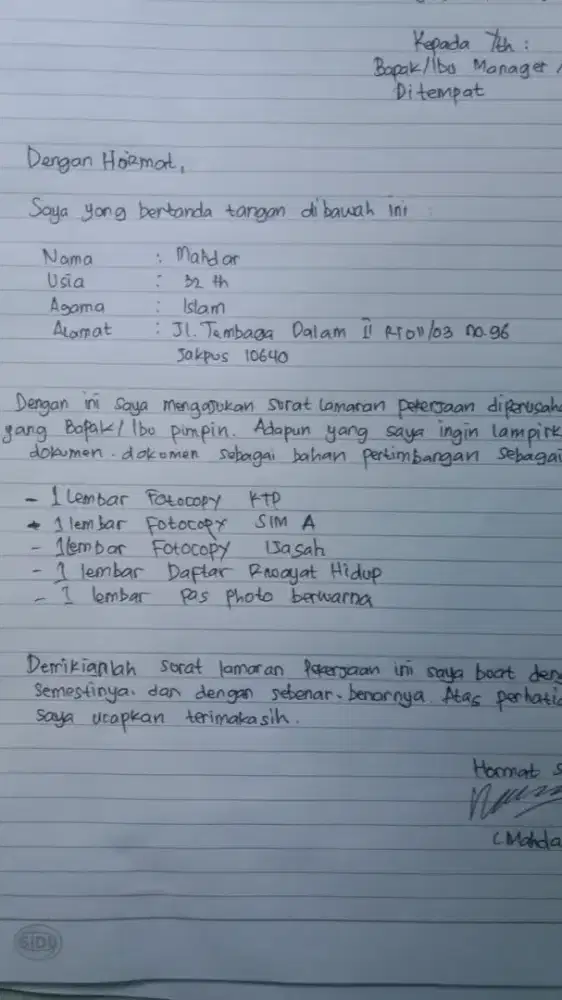 Kepada Yth :
Bapak/Ibu Manager
Ditempat
Dengan Hormat,
Saya yang bertanda tangan dibawah ini :
Nama : Mahdar
Usia : 32 th
Agama : Islam
Alamat : Jl. Tembaga Dalam II RT011/03 no.96
Jakpus 10640
Dengan ini saya mengajukan surat lamaran pekerjaan diperusah
yang Bapak/Ibu pimpin. Adapun yang saya ingin lampirk
dokumen-dokumen sebagai bahan pertimbangan sebagai
- 1 Lembar Fotocopy KTP
- 1 lembar Fotocopy SIM A
- 1 lembar Fotocopy Ijasah
- 1 lembar Daftar Riwayat Hidup
- 1 lembar pas photo berwarna
Demikianlah surat lamaran Pekerjaan ini saya buat deng
semestinya. dan dengan sebenar-benarnya. Atas perhatia
saya ucapkan terimakasih.
Hormat S
(Mahda
SIDU